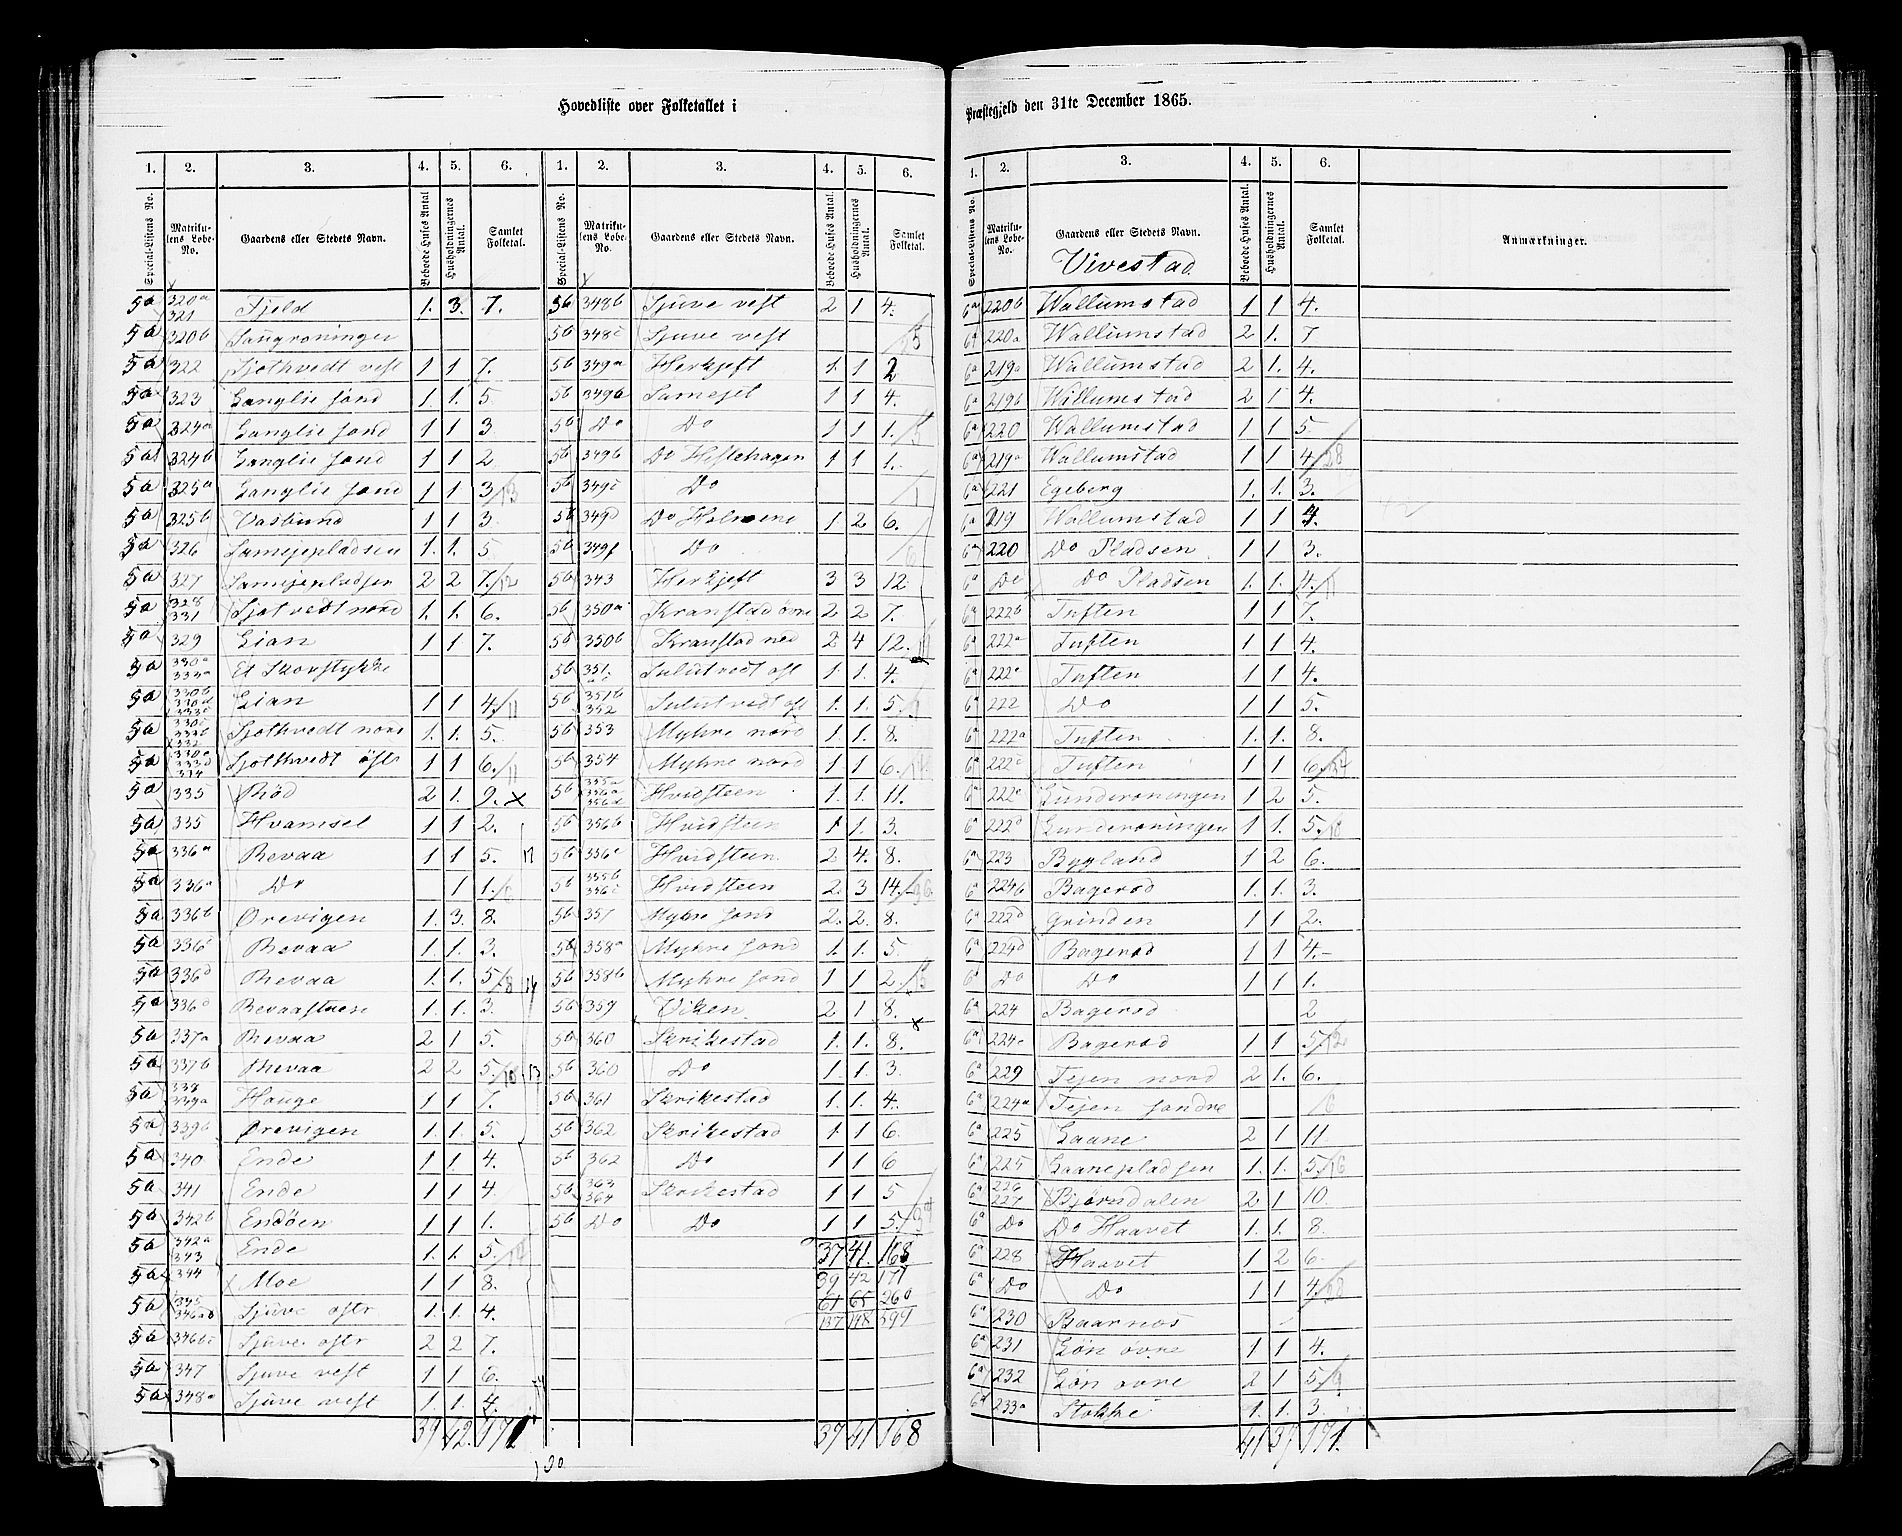 Hovedliste over Folketallet i
Præstegjeld den 31te December 1865.
1. 2. 3. 4. 5. 6. 1. 2. 3. 4. 5. 6.
Special-Listens No. Matrikulens Løbe-No. Gaardens eller Stedets Navn. Beboede Huses Antal. Husholdningernes Antal. Samlet Folketal. Special-Listens No. Matrikulens Løbe-No. Gaardens eller Stedets Navn. Beboede Huses Antal. Husholdningernes Antal. Samlet Folketal.
5a 320a 321 Fjeld 1. 3. 7.
5a 320b
5a 322 Sjothvedt vest 1 1 7.
5a 323 Langlie sønd 1. 1. 5.
5a 324a Langlie sønd 1 1 3
5a 324b Langlie sønd 1 1 2
5a 325a Langlie sønd 1 1 3/13
5a 325b Vasbund 1 1 3.
5a 326 Lamejepladsen 1. 1. 5
5a 327 Lamejepladsen 2 2 7/12
5a 328 331 Sjotvedt nord 1. 1. 6.
5a 329 Lian 1 1 7.
5a 330a Et Skovstykke
5a 330b Lian 1 1 4/11
5a Sjothvedt nord 1. 1. 5.
5a 334 Sjothvedt østr 1 1 6/11
5a 335 Rød 2 1. 9. x
5a 335 Hvamsel 1 1 2.
5a 336a Revaa 1 1 5. 17
5a 336a Do 1 1.
5a 336b Ørevigen 1. 3. 8.
5a 336c Revaa 1. 1. 3.
5a 336d Revaa 1. 1. 5/8
5a 336d Revaastuen 1. 1. 3.
5a 337a Revaa 2 1 5.
5a 337b Revaa 2 2 5/10 13
5a 338 339a Hauge 1 1 7.
5a 339b Ørevigen 1. 1. 5.
5a 340 Ende 1 1. 4.
5a 341 Ende 1 1 4.
5a 342b Endøen 1 1 1.
5a 342a 343 Ende 1. 1. 5.
5a 344 Moe 1 1 8.
5a 345 Sjuve østr 1. 1. 4.
5a 346 Sjuve østr 2 2 7.
5a 347 Sjuve vest 1 1 6.
5a 348a Sjuve vest 1. 1. 4.
39 42. 171
5b 348b Sjuve vest 2 1 4.
5b 348c Sjuve vest
5b 349a Herkjest 1. 1 2
5b 349b Lamejet 1 1 4.
5b Do Do 1 1 1.
5b 349b Do Hestehagen 1 1 1.
5b 349c Do
5b 349d Do Holmene 1 2 6.
5b 349f Do
5b 343 Herkjest 3 3 12
5b 350a Kranstad øvre 2 2 7.
5b 350b Kranstad ned 2 4 12.
5b 351 Sulutvedt øst 1 1 4.
5b 351b 352 Sulutvedt øst 1. 1. 5/9
5b 353 Myhre nord 1. 1 8.
5b 354 Myhre nord 1 1 6/14
5b 355a 356a Hvidsteen 1. 1. 11.
5b 356b Hvidsteen 1 1. 3.
5b 356c Hvidsteen 2 4. 8.
5b 355b Hvidsteen 2. 3 14/36
5b 357 Myhre sønd 2. 2. 8.
5b 358a Myhre sønd 1. 1. 5.
5b 358b Myhre sønd 1 1 2/15
5b 359 Viken 2 1 8. x
5b 360 Skrikestad 1. 1. 8.
5b 360 Do 1. 1 3.
5b 361 Skrikestad 1. 1. 4.
5b 362 Skrikestad 1 1 6.
5b 362 Do 1 1 6
5b 363 364 Skrikestad 1 1 5
5b Do Do 1 1 5.
37 41. 168
39 42 171
61 65 260
137 148 599
37 41 168
90
1. 2. 3. 4. 5. 6.
Special-Listens No. Matrikulens Løbe-No. Gaardens eller Stedets Navn. Beboede Huses Antal. Husholdningernes Antal. Samlet Folketal. Anmærkninger.
Vivestad
6a 220b Wallumstad 1 1 4.
6a 220a Wallumstad 2 1. 7
6a 219a Wallumstad 2 1. 4.
6a 219b Wallumstad 2 1 4.
6a 220 Wallumstad 1 1 5
6a 219a Wallumstad 1 1 4/28
6a 221 Egeberg 1. 1. 3.
6a 219 Wallumstad 1 1 4.
6a 220 Do Pladsen 1 1 3.
6a Do Do Pladsen 1. 1. 4./11
6a 222b Tuften 1 1 7.
6a 222a Tuften 1 1 4.
6a 222a Tuften 1 1 4.
6a 222 Do 1 1 5.
6a 222a Tuften 1. 1. 8.
6a 222c Tuften 1 1 6/24
6a 222a Gunderøningen 1 2 5.
6a 222d Gunderøningen 1 1. 5./10
6a 223 Bygland 1 2 6.
6a 224b Bagerød 1. 1. 3.
6a 222d Grinden 1 1 2.
6a 224d Bagerød 1 1 4.
6a Do Do 1 1 1.
6a 224 Bagerød 2
6a 224c Bagerød 1 1 5/12
6a 229 Tejen nord 2 1. 6.
6a 224a Tejen søndre /6
6a 225 Laane 2 1 11
6a 225 Laanepladsen 1. 1. 5/16
6a 226 227 Bjørndalen 2 1 10.
6a Do Do Haavet 1 1. 8.
6a 228 Haavet 1 2 6.
6a Do Do 1 1 4/28
6a 230 Baarnøs
6a 231 Løn øvre 1 1 4.
6a 232 Løn øvre 2 1 5/9
6a 233a Stokke 1. 1. 3.
41 37 191.